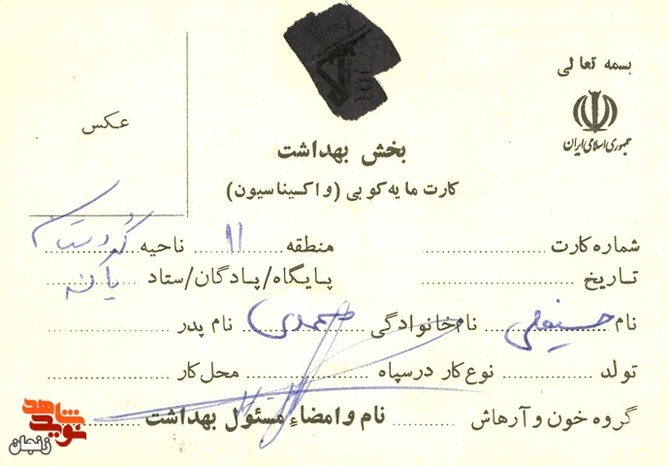 بسمه تعالی
جمهوری اسلامی ایران
عکس
بخش بهداشت
کارت مایه کوبی (واکسیناسیون)
شماره کارت منطقه 11 ناحیه کردستان
تاریخ پایگاه/پادگان/ستاد بانه
نام حسینعلی نام خانوادگی محمدی نام پدر
تولد نوع کار در سپاه محل کار
گروه خون و آرهاش نام و امضاء مسئول بهداشت
نوید شاهد
زنجان